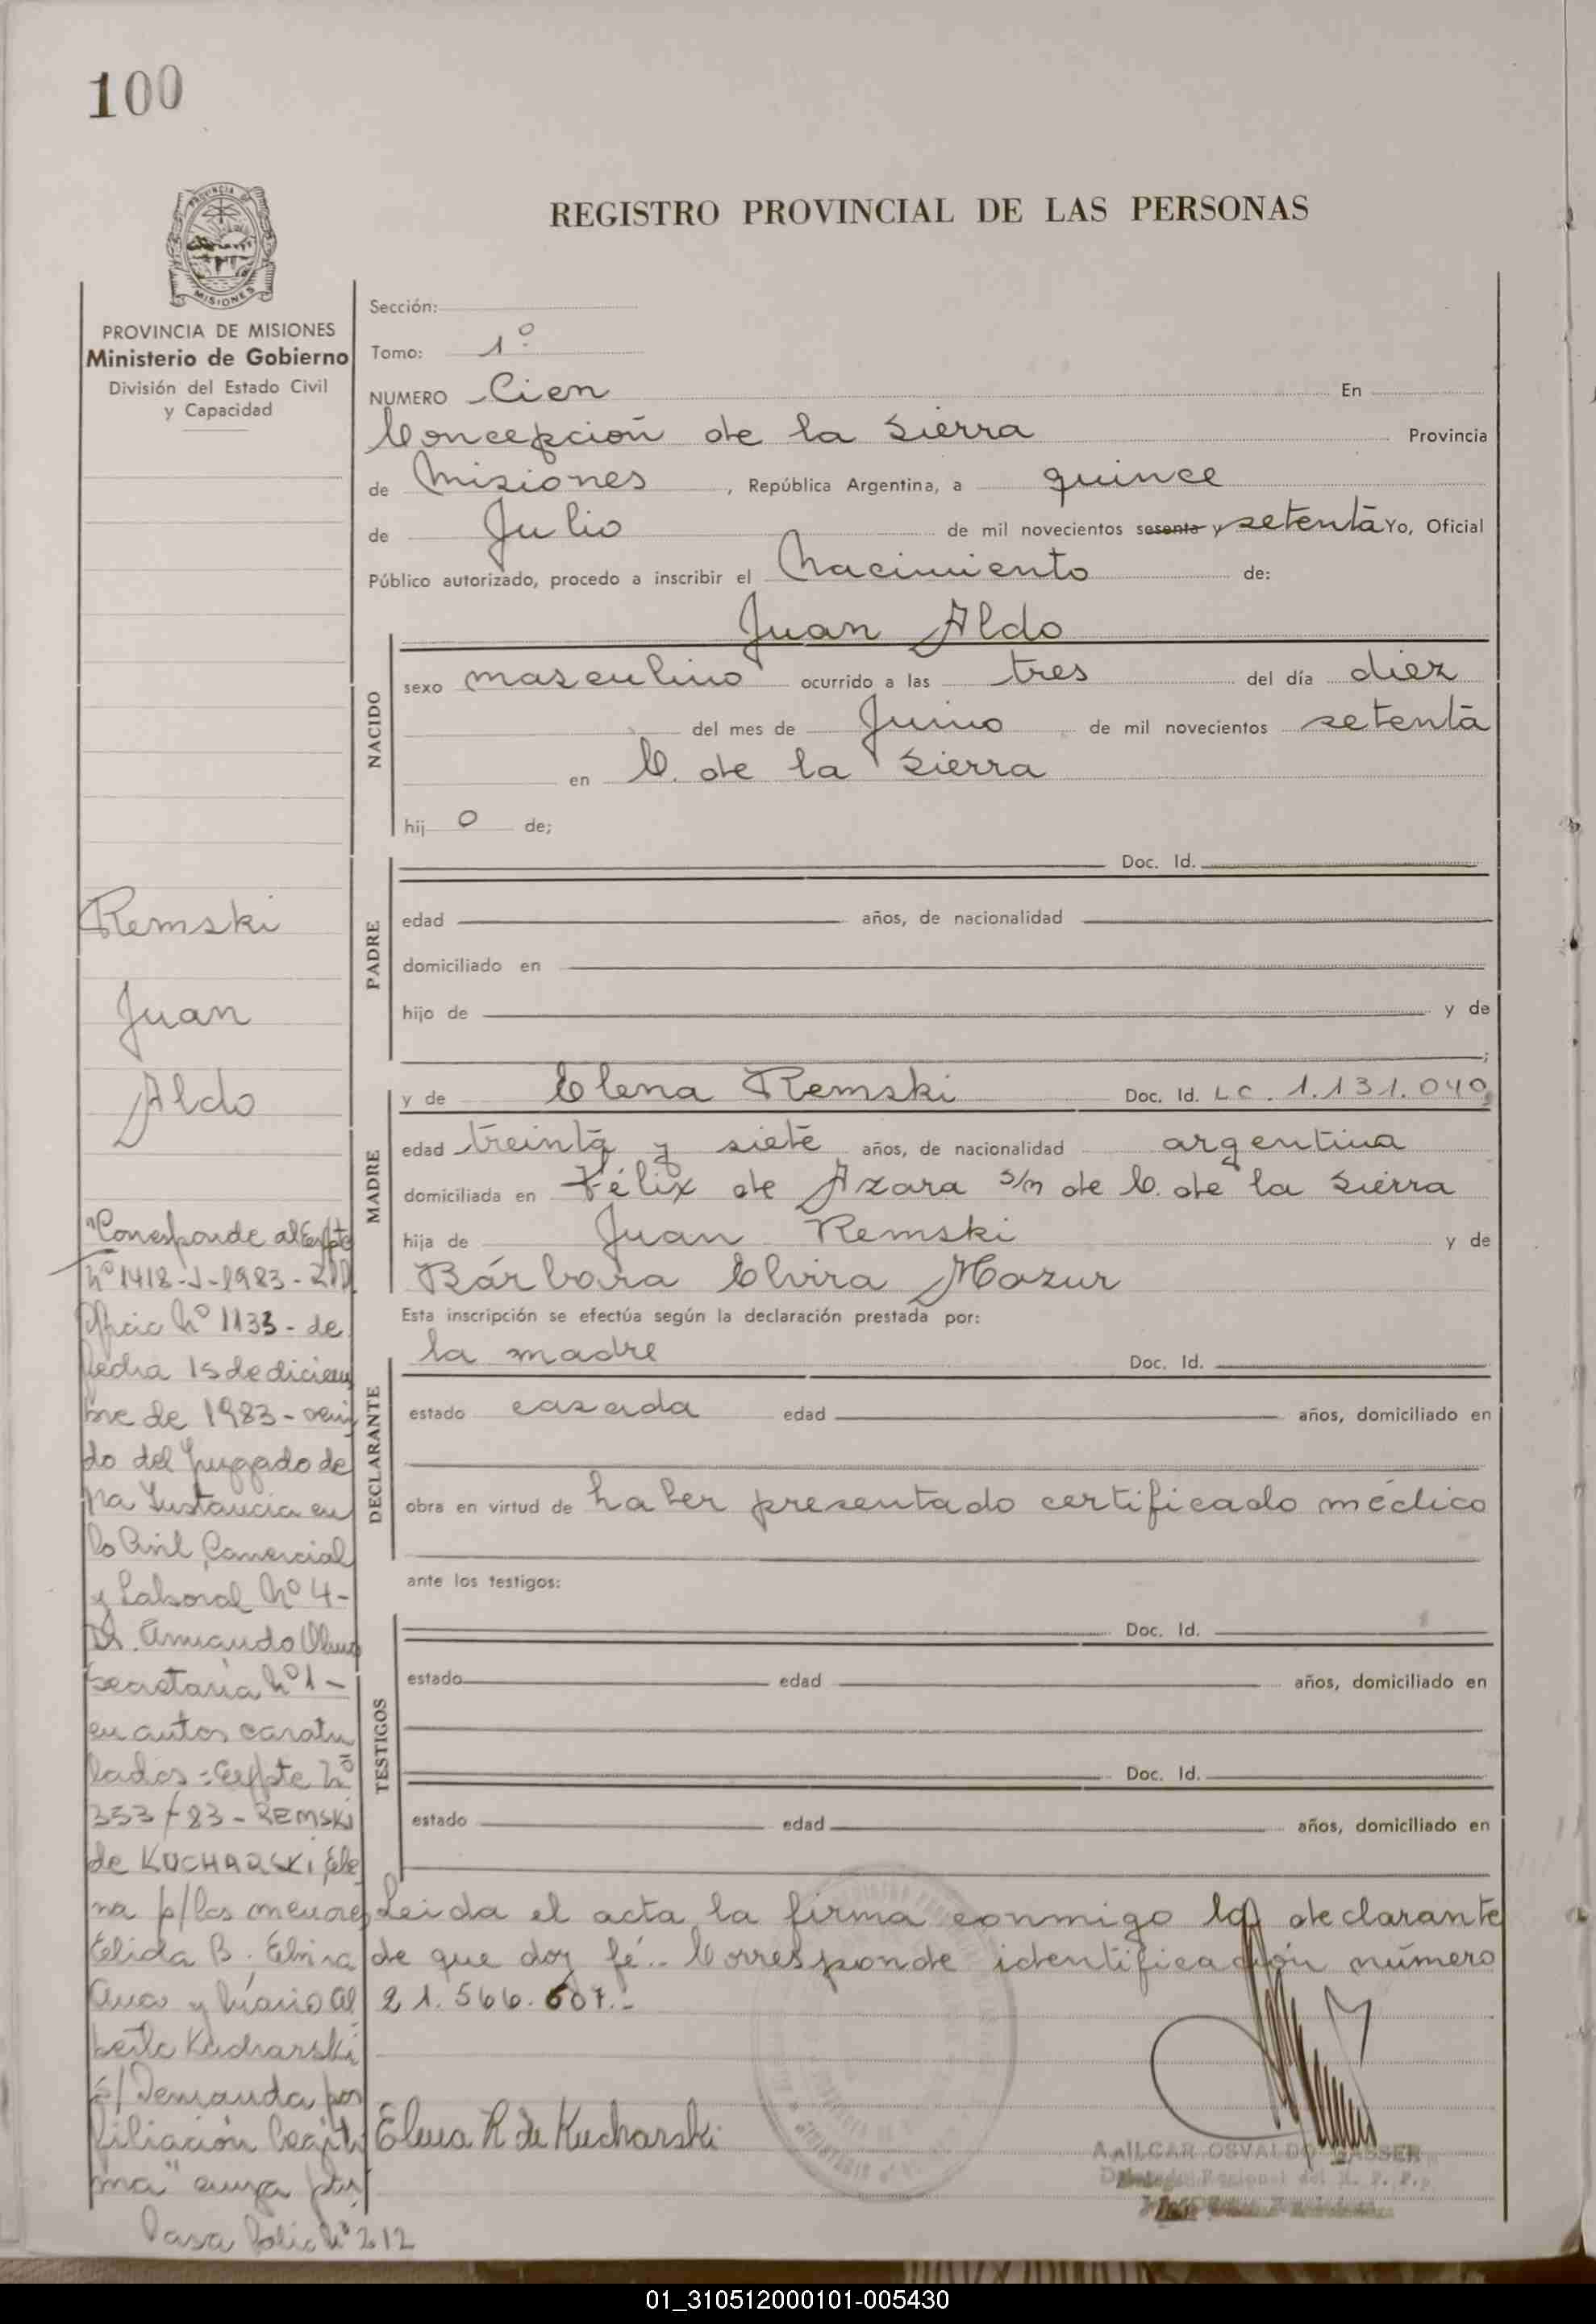 100
PROVINCIA DE
MISIONES
REGISTRO PROVINCIAL DE LAS PERSONAS
PROVINCIA DE MISIONES
Ministerio de Gobierno
División del Estado Civil
y Capacidad
Sección:
Tomo: 1º
NUMERO Cien En
Concepción de la Sierra Provincia
de Misiones, República Argentina, a quince
de Julio de mil novecientos sesenta y setenta Yo, Oficial
Público autorizado, procedo a inscribir el Nacimiento de:
Juan Aldo
NACIDO
sexo masculino ocurrido a las tres del día diez
del mes de Junio de mil novecientos setenta
en C. de la Sierra
hij o de;
PADRE
Doc. Id.
edad años, de nacionalidad
domiciliado en
hijo de y de
;
MADRE
y de Elena Remski Doc. Id. L C. 1.131.040,
edad treinta y siete años, de nacionalidad argentina
domiciliada en Félix de Azara s/n de C. de la Sierra
hija de Juan Remski y de
Bárbara Elvira Mazur
Esta inscripción se efectúa según la declaración prestada por:
DECLARANTE
la madre Doc. Id.
estado casada edad años, domiciliado en
obra en virtud de haber presentado certificado médico
ante los testigos:
TESTIGOS
Doc. Id.
estado edad años, domiciliado en
Doc. Id.
estado edad años, domiciliado en
Leida el acta la firma conmigo la declarante
de que doy fé.. Corresponde identificación número
21.566.607.-
Elena R de Kucharski
AMILCAR OSVALDO GASSER
Delegado Regional del R. P. P.
Remski
Juan
Aldo
"Corresponde al Expte
Nº 1418-J-1983-
Oficio Nº 1133 - de
fecha 15 de diciem
bre de 1983 - veni
do del Juzgado de
1ra Instancia en
lo Civil, Comercial
y Laboral Nº 4 -
Dr. Armando
Secretaría Nº 1 -
en autos caratu
lados: Expte Nº
353/83 - REMSKI
de KUCHARSKI, Ele
na p/los menores
Elida B. Elvira
Ana y Mario Al
berto Kucharski
s/Demanda por
filiación legíti
ma" cuya par
Pasa Folio Nº 212
01_310512000101-005430